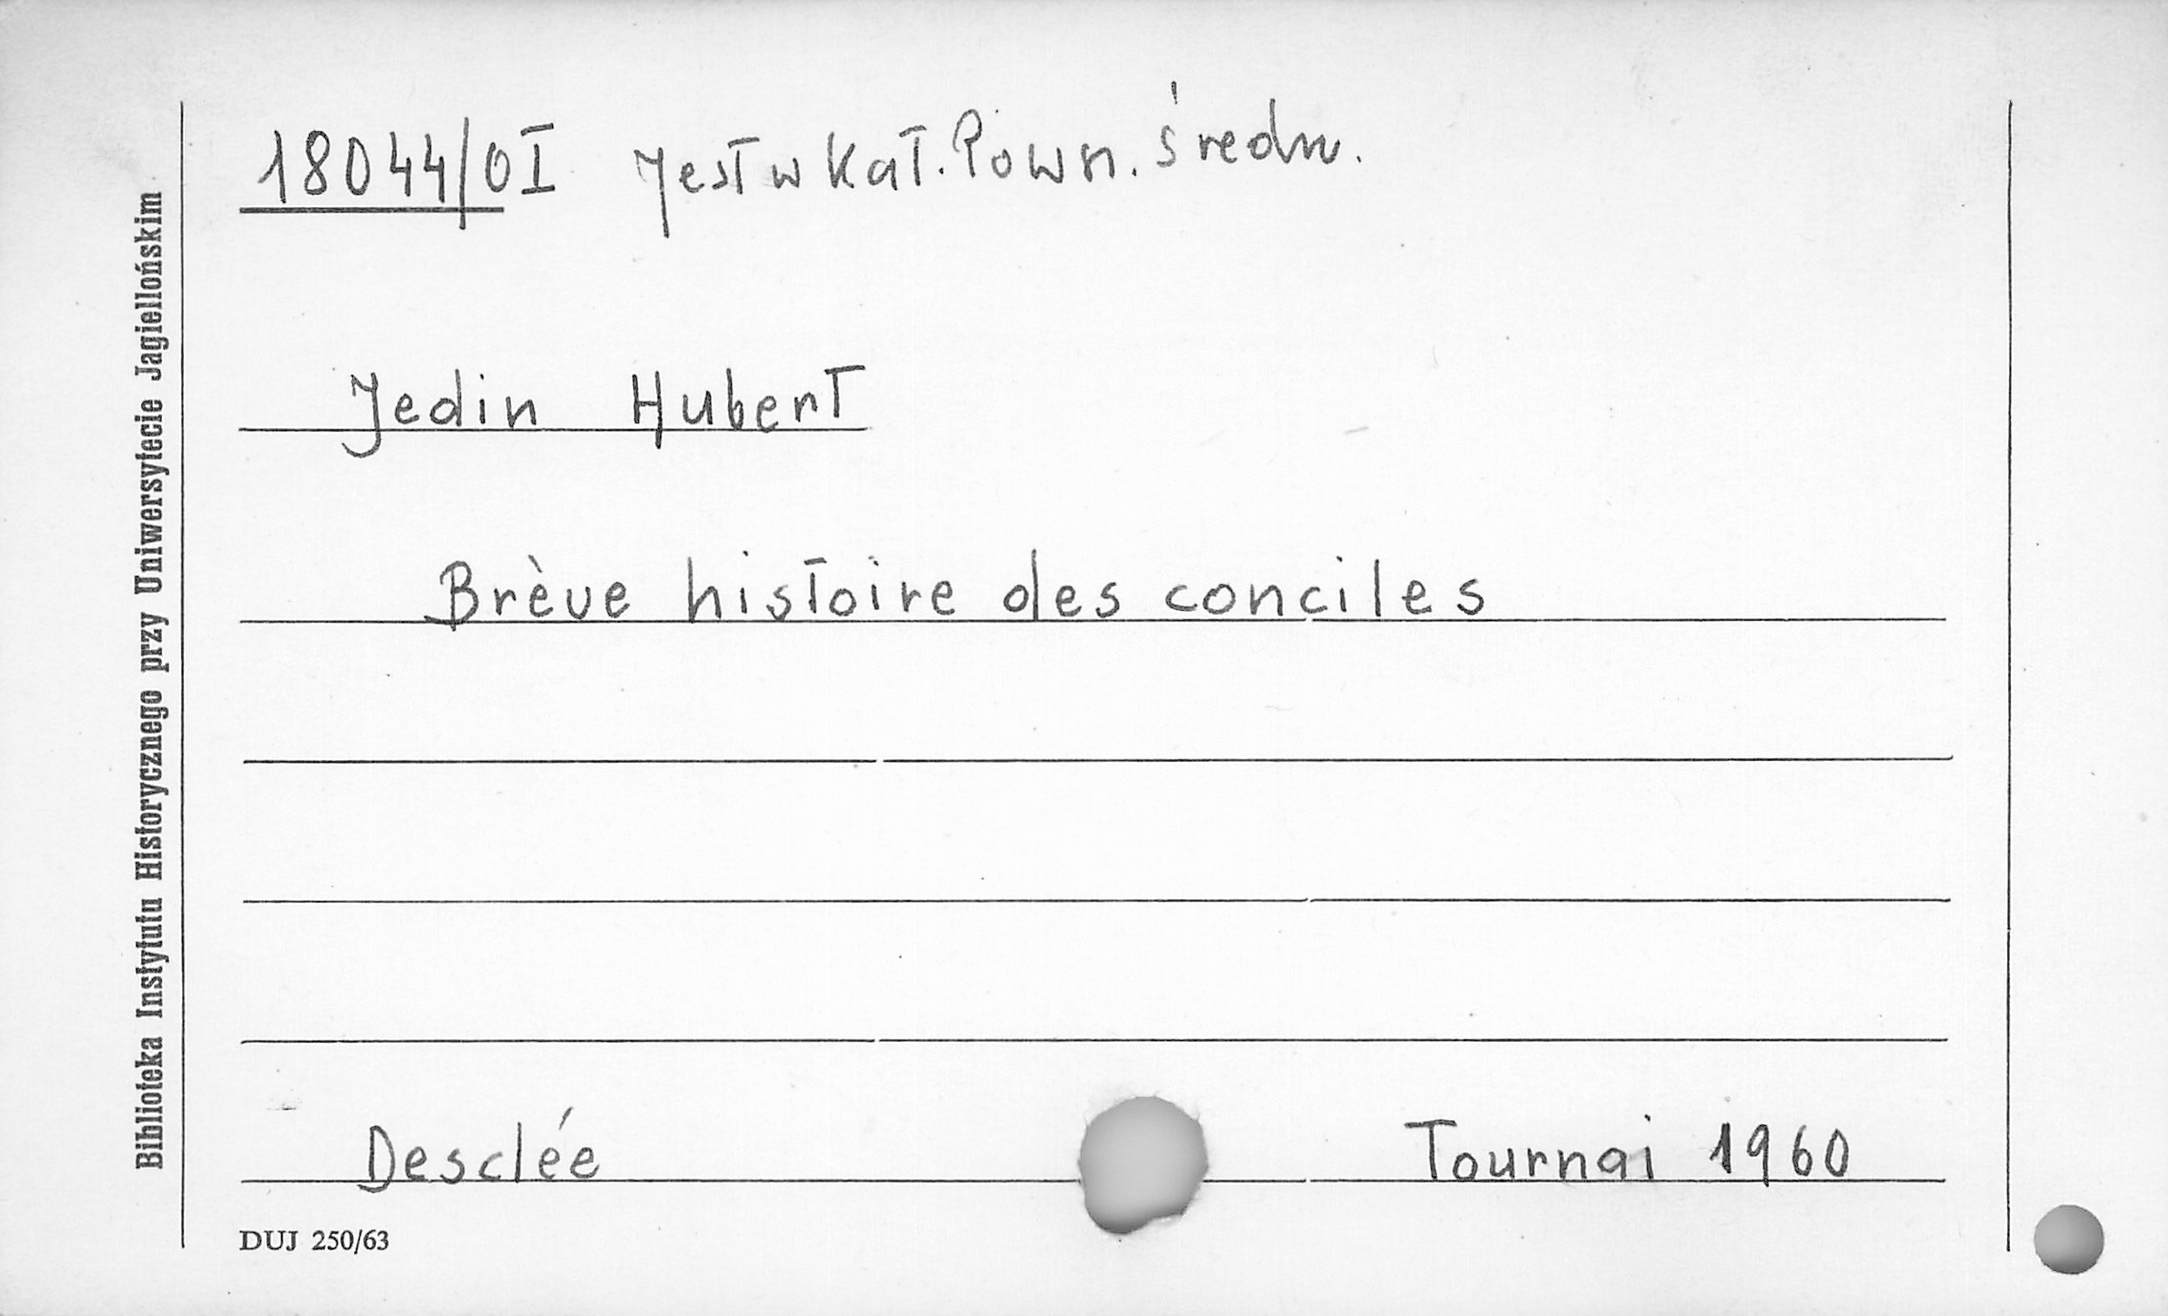 18044/OI Jest w Kat. Pown. średn.
Jedin Hubert
Brève histoire des conciles
Desclée Tournai 1960
DUJ 250/63
Biblioteka Instytutu Historycznego przy Uniwersytecie Jagiellońskim